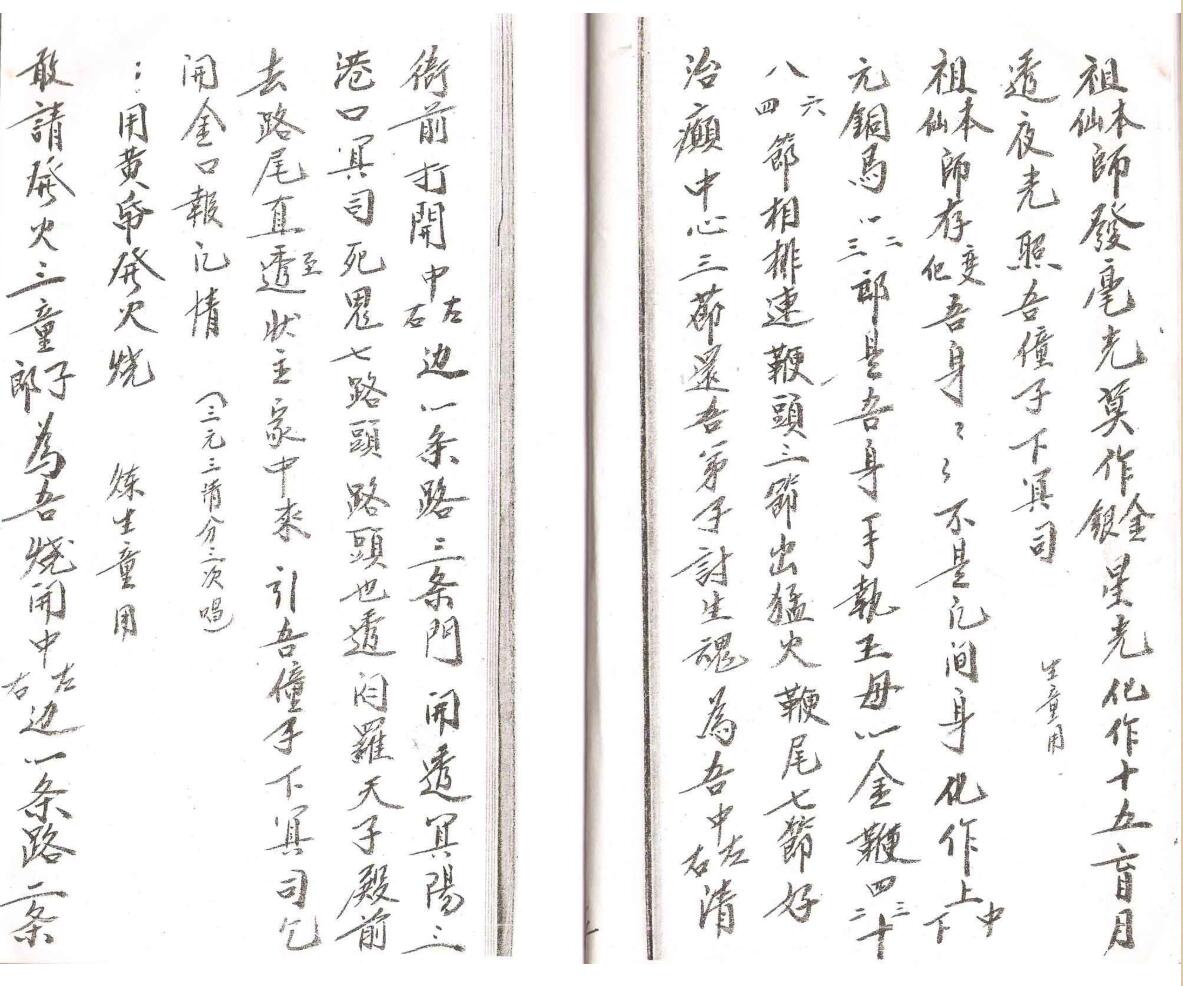 祖本仙師發毫光莫作金銀星光化作十五盲月
透夜光照吾僮子下冥司
生童用
祖本仙師存変化吾身〻〻不是凡间身化作上中下
元銅馬一二三郎是吾身手執王母一金鞭四三二十
八六四節相排連鞭頭三節出猛火鞭尾七節好
治癲中心三莭還吾弟子討生魂為吾中左右清
衙前打開中左右边一条路三条門開透冥陽三
港口冥司死鬼七路頭路頭也透闫羅天子殿前
去路尾直透至状主家中來引吾僮子下冥司乞
開金口報凡情（三元三清分三次唱）
：用黄帋発火烧 炼生童用
敢請発火三童子郎為吾烧開中左右边一条路二条